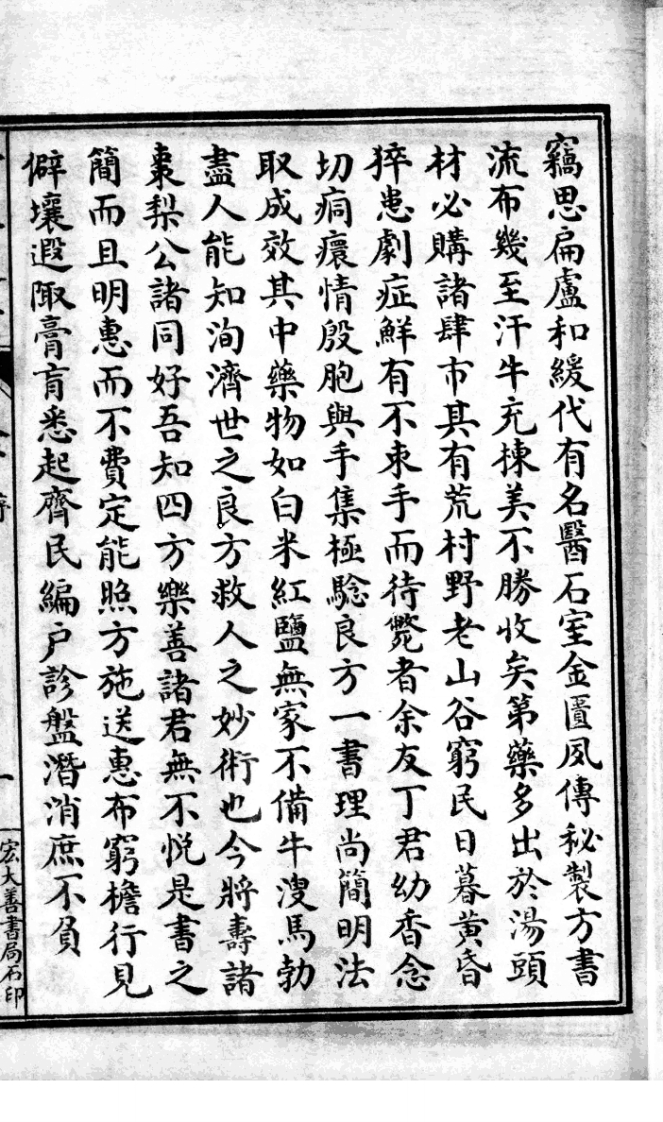 竊思扁盧和緩代有名醫石室金匱夙傳秘製方書
流布幾至汗牛充棟美不勝收矣第藥多出於湯頭
材必購諸肆市其有荒村野老山谷窮民日暮黃昏
猝患劇症鮮有不束手而待斃者余友丁君幼香念
切痌瘝情殷胞與手集極騐良方一書理尚簡明法
取成效其中藥物如白米紅鹽無家不備牛溲馬勃
盡人能知洵濟世之良方救人之妙術也今將壽諸
棗梨公諸同好吾知四方樂善諸君無不悅是書之
簡而且明惠而不費定能照方施送惠布窮檐行見
僻壤遐陬膏肓悉起齊民編户診盤潛消庶不負
序
一
宏大善書局石印